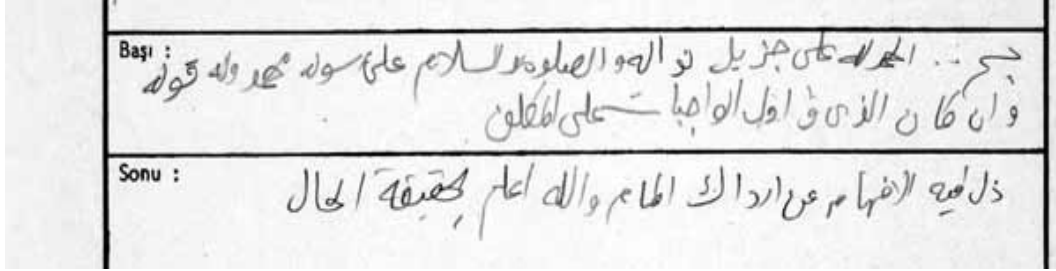 Başı : بسم .. الحمد لله على جزيل نواله والصلوة والسلام على رسوله محمد وآله قوله
وان كان الذى فى اول الواجبات على المكلف
Sonu : ذل فيه الافهام عن ادراك المام والله اعلم بحقيقة الحال